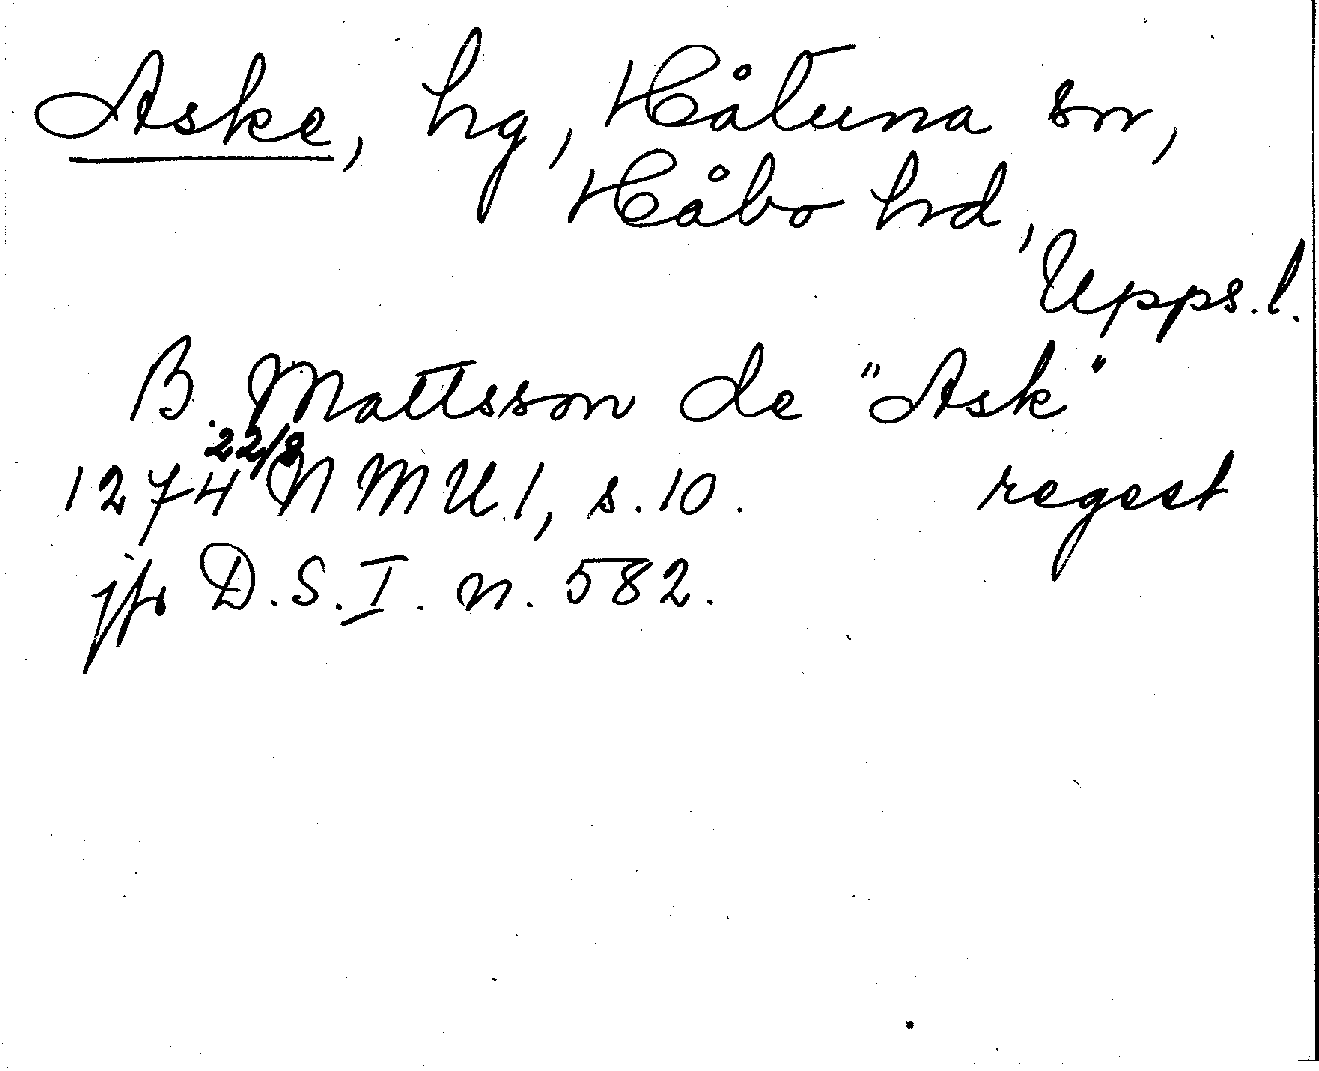 Aske, hg, Håtuna sn,
Håbo hrd,
Upps. l.
B. Mattsson de "Ask"
1274 22/8 NMU 1, s. 10. regest
jfr D. S. I. n. 582.